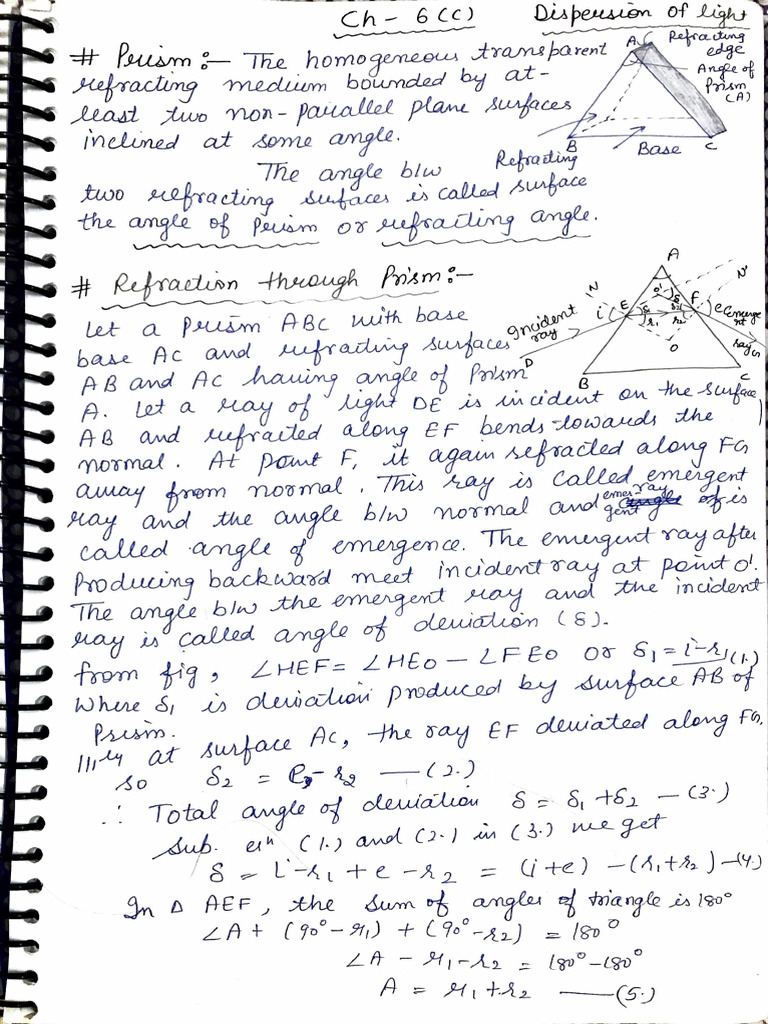 Ch - 6 (C) Dispersion of light
# Prism:- The homogeneous transparent
refracting medium bounded by at-
least two non-parallel plane surfaces
inclined at some angle.
A
Refracting
edge
Angle of
Prism
(A)
B
Base
C
Refracting
surface
The angle b/w
two refracting surfaces is called
the angle of Prism or refracting angle.
# Refraction through Prism:-
A
N
N'
i
E
F
e
δ
r1
r2
O'
O
Incident
ray
D
Emerge
nt
ray G
B
C
Let a Prism ABC with base
base AC and refracting surfaces
AB and AC having angle of Prism
A. Let a ray of light DE is incident on the surface
AB and refracted along EF bends towards the
normal. At point F, it again refracted along FG
away from normal. This ray is called emergent
ray and the angle b/w normal and emergent ray is
called angle of emergence. The emergent ray after
Producing backward meet incident ray at point O'.
The angle b/w the emergent ray and the incident
ray is called angle of deviation (δ).
from fig, ∠HEF = ∠HEO - ∠FEO or δ1 = i-r1 (1.)
Where δ1 is deviation produced by surface AB of
Prism.
|||ly at surface AC, the ray EF deviated along FG,
so δ2 = e - r2 — (2.)
∴ Total angle of deviation δ = δ1 + δ2 — (3.)
Sub. eqn (1.) and (2.) in (3.) we get
δ = i - r1 + e - r2 = (i+e) - (r1+r2) - (4.)
In Δ AEF, the sum of angles of triangle is 180°
∠A + (90° - r1) + (90° - r2) = 180°
∠A - r1 - r2 = 180° - 180°
A = r1 + r2 — (5.)